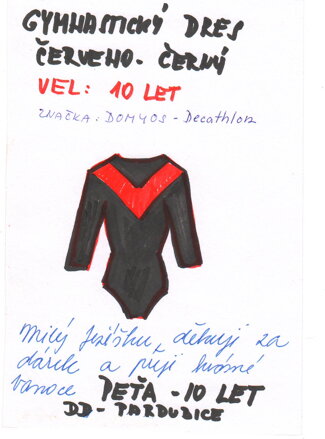 GYMNASTICKÝ DRES
ČERVENO-ČERNÝ
VEL: 10 LET
ZNAČKA: DOMYOS - Decathlon
Milý Ježíšku, děkuji za
dárek a přeji krásné
Vánoce PEŤA - 10 LET
DD - PARDUBICE